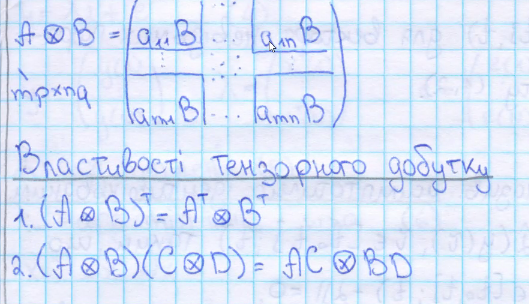 A ⊗ B = (a₁₁B ... a₁ₙB
mp×nq
aₘ₁B ... aₘₙB)
Властивості тензорного добутку
1. (A ⊗ B)ᵀ = Aᵀ ⊗ Bᵀ
2. (A ⊗ B)(C ⊗ D) = AC ⊗ BD